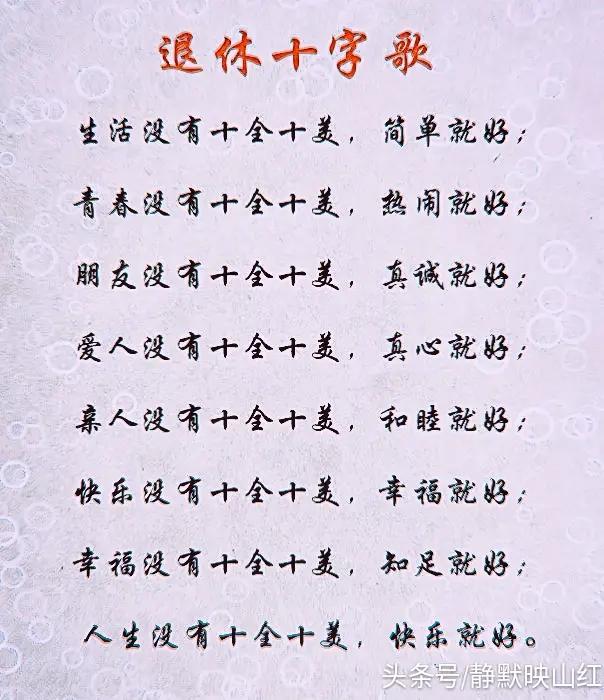 退休十字歌
生活没有十全十美，简单就好；
青春没有十全十美，热闹就好；
朋友没有十全十美，真诚就好；
爱人没有十全十美，真心就好；
亲人没有十全十美，和睦就好；
快乐没有十全十美，幸福就好；
幸福没有十全十美，知足就好；
人生没有十全十美，快乐就好。
头条号/静默映山红